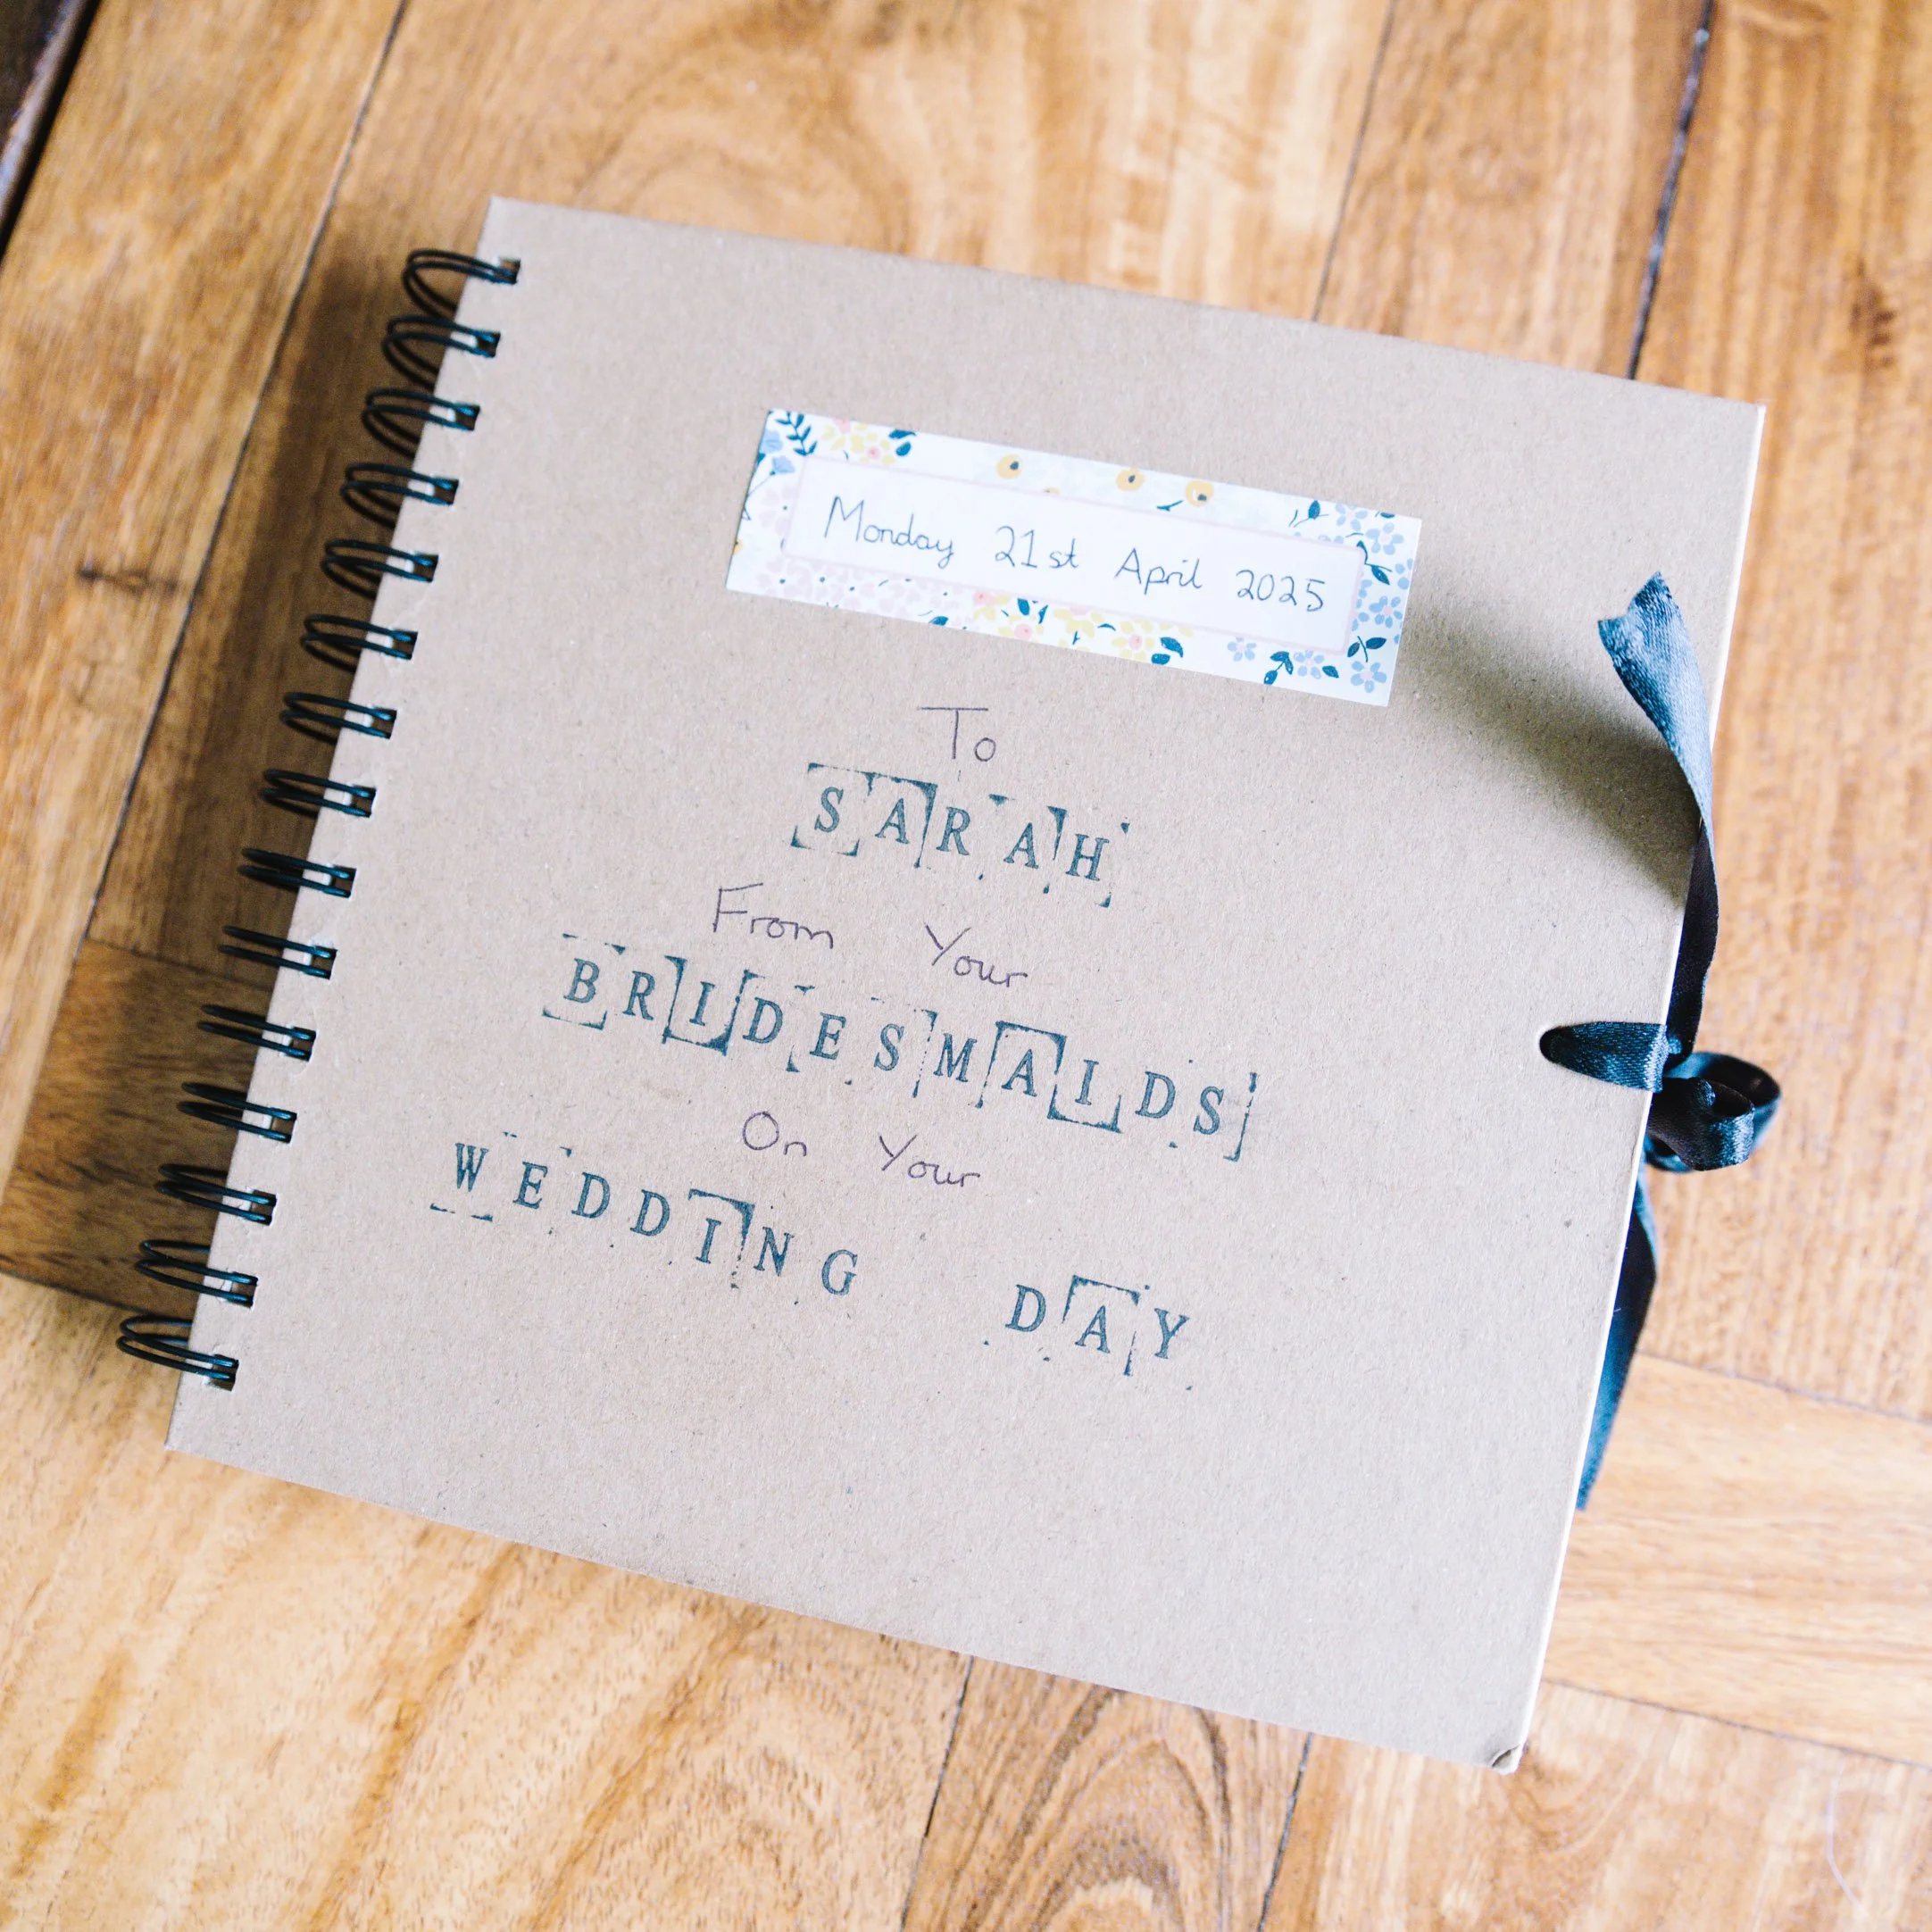 Monday 21st April 2025
To
SARAH
From Your
BRIDESMAIDS
On Your
WEDDING DAY